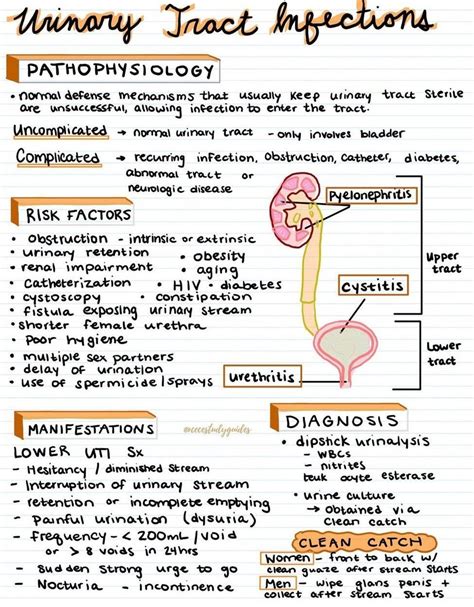 Urinary Tract Infections
PATHOPHYSIOLOGY
• normal defense mechanisms that usually keep urinary tract sterile
are unsuccessful, allowing infection to enter the tract.
Uncomplicated → normal urinary tract - only involves bladder
Complicated → recurring infection, obstruction, catheter, diabetes,
abnormal tract or
neurologic disease
RISK FACTORS
• obstruction - intrinsic or extrinsic
• urinary retention
• obesity
• renal impairment
• aging
• catheterization
• HIV • diabetes
• cystoscopy
• constipation
• fistula exposing urinary stream
• shorter female urethra
• poor hygiene
• multiple sex partners
• delay of urination
• use of spermicide/sprays
Pyelonephritis
Upper
tract
cystitis
Lower
tract
urethritis
MANIFESTATIONS
@necestudyguides
LOWER UTI Sx
- Hesitancy / diminished stream
- Interruption of urinary stream
- retention or incomplete emptying
- Painful urination (dysuria)
- frequency - < 200mL / void
or > 8 voids in 24hrs
- sudden strong urge to go
- Nocturia - incontinence
DIAGNOSIS
• dipstick urinalysis
- WBCs
- nitrites
leuk ocyte esterase
• urine culture
→ obtained via
clean catch
CLEAN CATCH
Women - front to back w/
clean guaze after stream starts
Men - wipe glans penis +
collect after stream starts